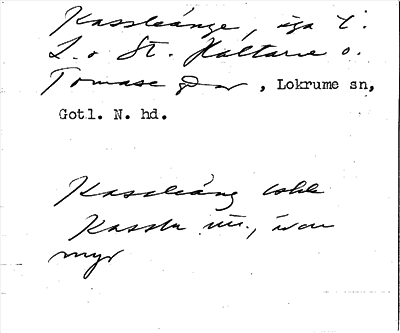 Kassleänge, äga t.
L. o St. Haltarve o.
Tomase , Lokrume sn,
Gotl. N. hd.
Kassleäng
Kassle m., även
myr